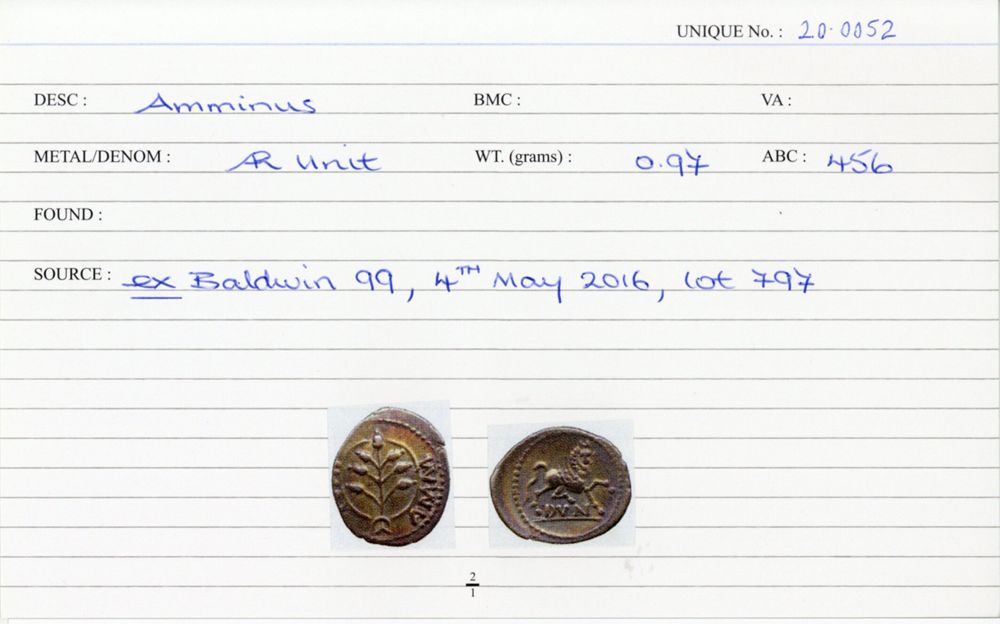 UNIQUE No. : 20.0052
DESC : Amminus BMC : VA :
METAL/DENOM : AR Unit WT. (grams) : 0.97 ABC : 456
FOUND :
SOURCE : ex Baldwin 99, 4TH May 2016, lot 797
AMM
DVN
2
1